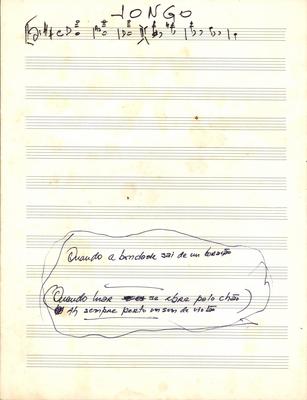 JONGO
Quando a bondade sai de um coração
Quando luar se abre pelo chão
Há sempre perto um som de violão